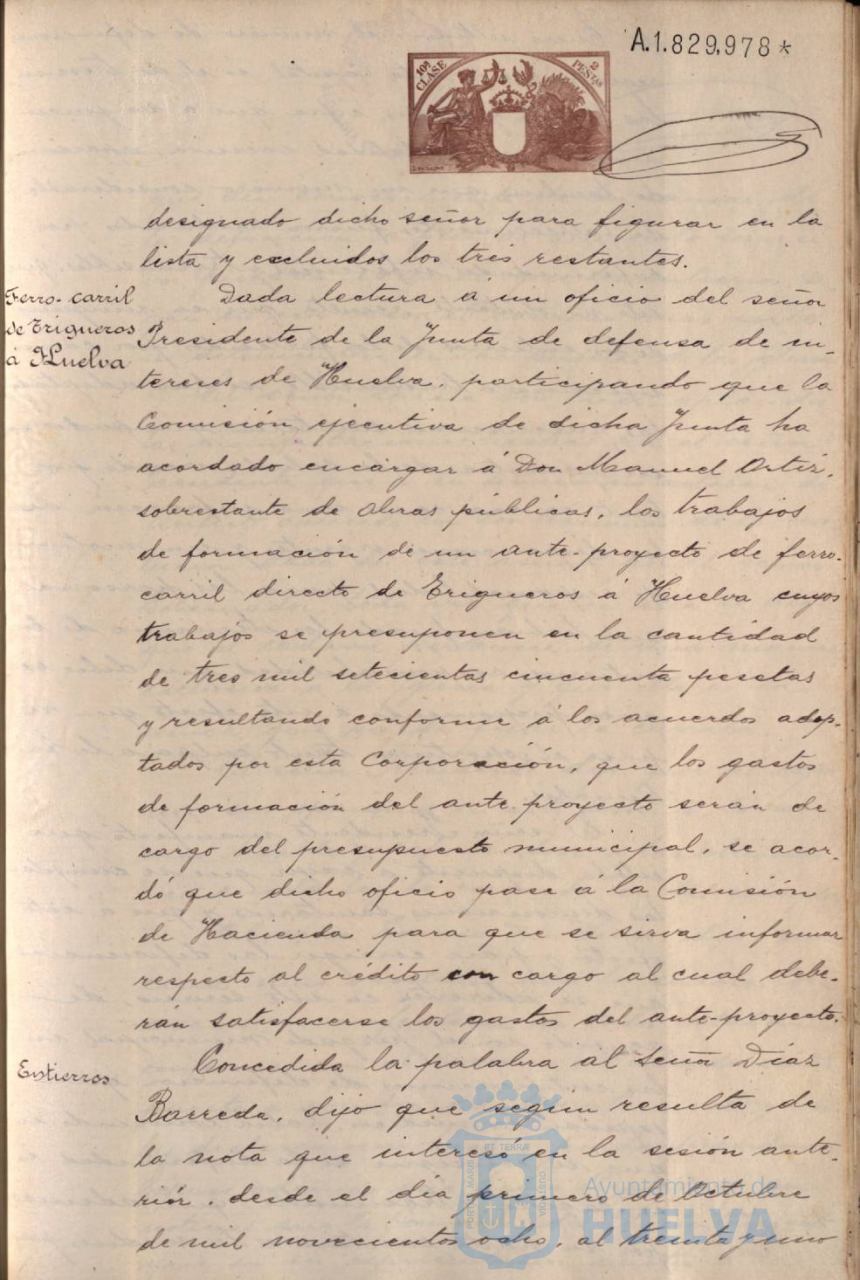 A.1.829,978*
10ª CLASE
2 PESTAS
designado dicho señor para figurar en la
lista y excluidos los tres restantes.
Ferro-carril
de Trigueros
á Huelva
Dada lectura á un oficio del señor
Presidente de la Junta de defensa de in-
tereses de Huelva, participando que la
Comisión ejecutiva de dicha Junta ha
acordado encargar á Don Manuel Ortiz,
sobrestante de obras públicas, los trabajos
de formación de un ante-proyecto de ferro-
carril directo de Trigueros á Huelva cuyos
trabajos se presuponen en la cantidad
de tres mil setecientas cincuenta pesetas
y resultando conforme á los acuerdos adop-
tados por esta Corporación, que los gastos
de formación del ante proyecto serán de
cargo del presupuesto municipal, se acor-
dó que dicho oficio pase á la Comisión
de Hacienda para que se sirva informar
respecto al crédito con cargo al cual debe-
rán satisfacerse los gastos del ante-proyecto.
Entierros
Concedida la palabra al señor Díaz
Barreda, dijo que según resulta de
la nota que interesó en la sesión ante-
riór, desde el día primero de Octubre
de mil novecientos ocho, al treinta y uno
Ayuntamiento de
HUELVA